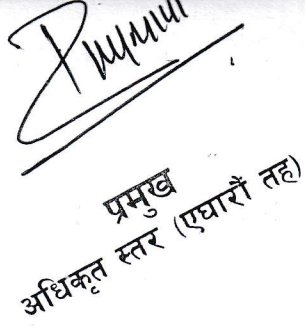 प्रमुख
अधिकृत स्तर (एघारौं तह)